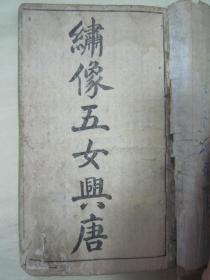 繡像五女興唐